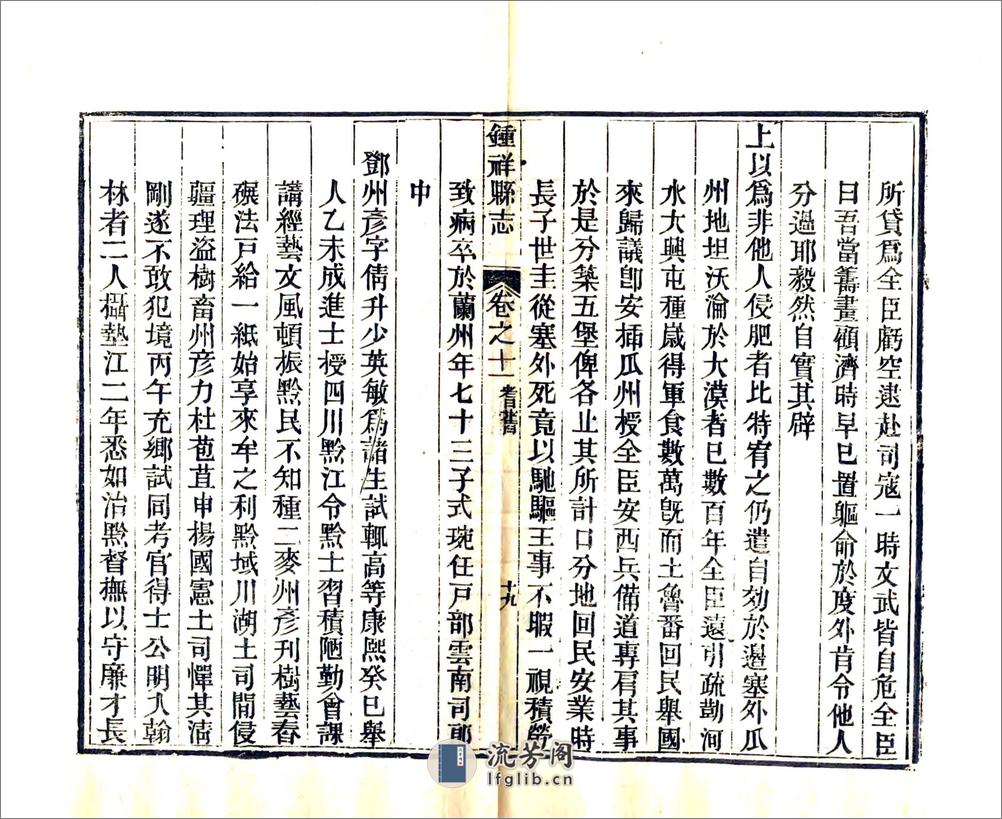 所貸爲全臣虧空逮赴司寇一時文武皆自危全臣
曰吾當籌畫顧濟時早已置軀命於度外肯令他人
分過耶毅然自實其辟
上以爲非他人侵肥者比特宥之仍遣自効於邊塞外瓜
州地坦沃淪於大漠者已數百年全臣遠引疏勒河
水大興屯種嵗得軍食數萬旣而土魯番回民舉國
來歸議卽安插瓜州授全臣安西兵備道專肩其事
於是分築五堡俾各止其所計口分地回民安業時
長子世圭從塞外死竟以馳驅王事不暇一視積勞
鍾祥縣志
卷之十一
耆舊
十九
致病卒於蘭州年七十三子式琬任戸部雲南司郎
中
鄧州彥字倩升少英敏爲諸生試輒高等康熙癸巳舉
人乙未成進士授四川黔江令黔士習積陋勤會課
講經藝文風頓振黔民不知種二麥州彥刋樹藝舂
碾法戸給一紙始享來牟之利黔域川湖土司閒侵
疆理盜樹畜州彥力杜苞苴申揚國憲土司憚其淸
剛遂不敢犯境丙午充鄉試同考官得士公明入翰
林者二人攝墊江二年悉如治黔督撫以守廉才長
流芳阁
lfglib.cn